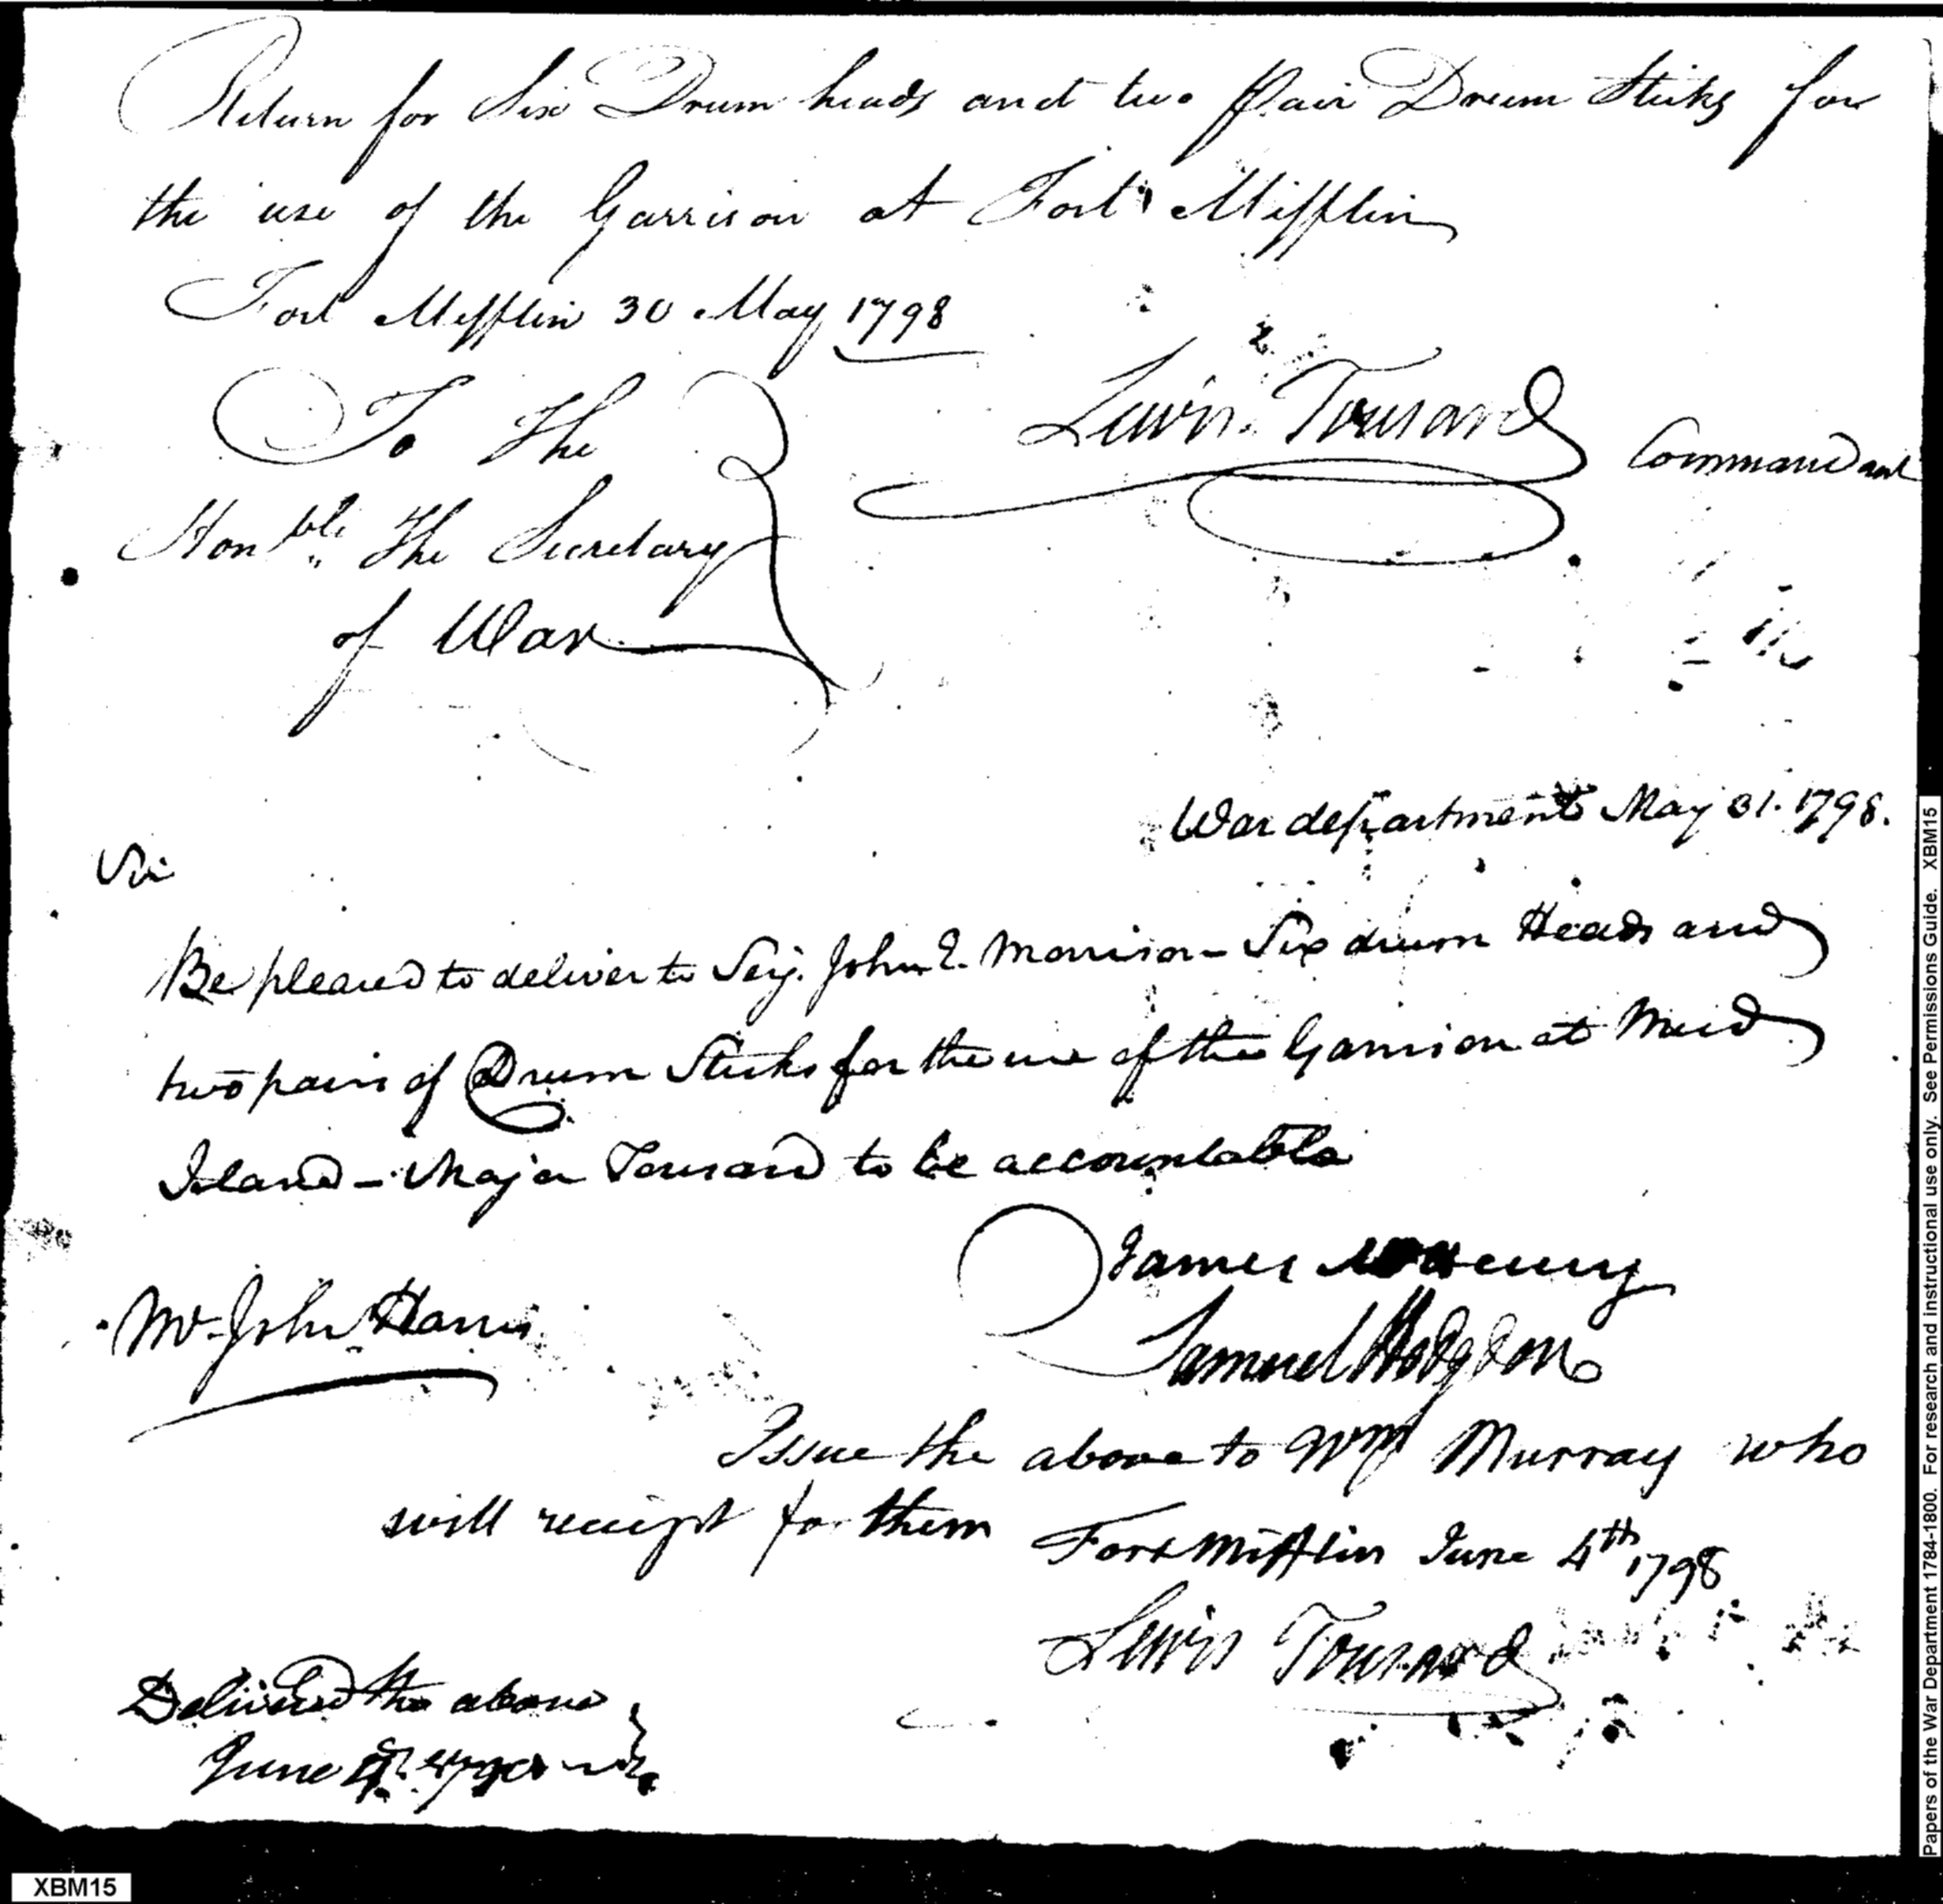 Return for Six Drum heads and two Pair Drum Sticks for
the use of the Garrison at Fort Mifflin
Fort Mifflin 30 May 1798
To the
Lewis Tousard Commandant
Honble. The Secretary
of War
War department May 31. 1798.
Sir
Be pleased to deliver to Serj. John Morrison - Six drum Heads and
two pairs of Drum Sticks for the use of the Garrison at Mud
Island - Major Tousard to be accountable
James McHenry
Mr. John Harris
Samuel Hodgdon
Issue the above to Wm Murray who
will receipt for them
Fort Mifflin June 4th 1798
Lewis Tousard
Delivered the above
June 4th 1798
Papers of the War Department 1784-1800. For research and instructional use only. See Permissions Guide. XBM15
XBM15